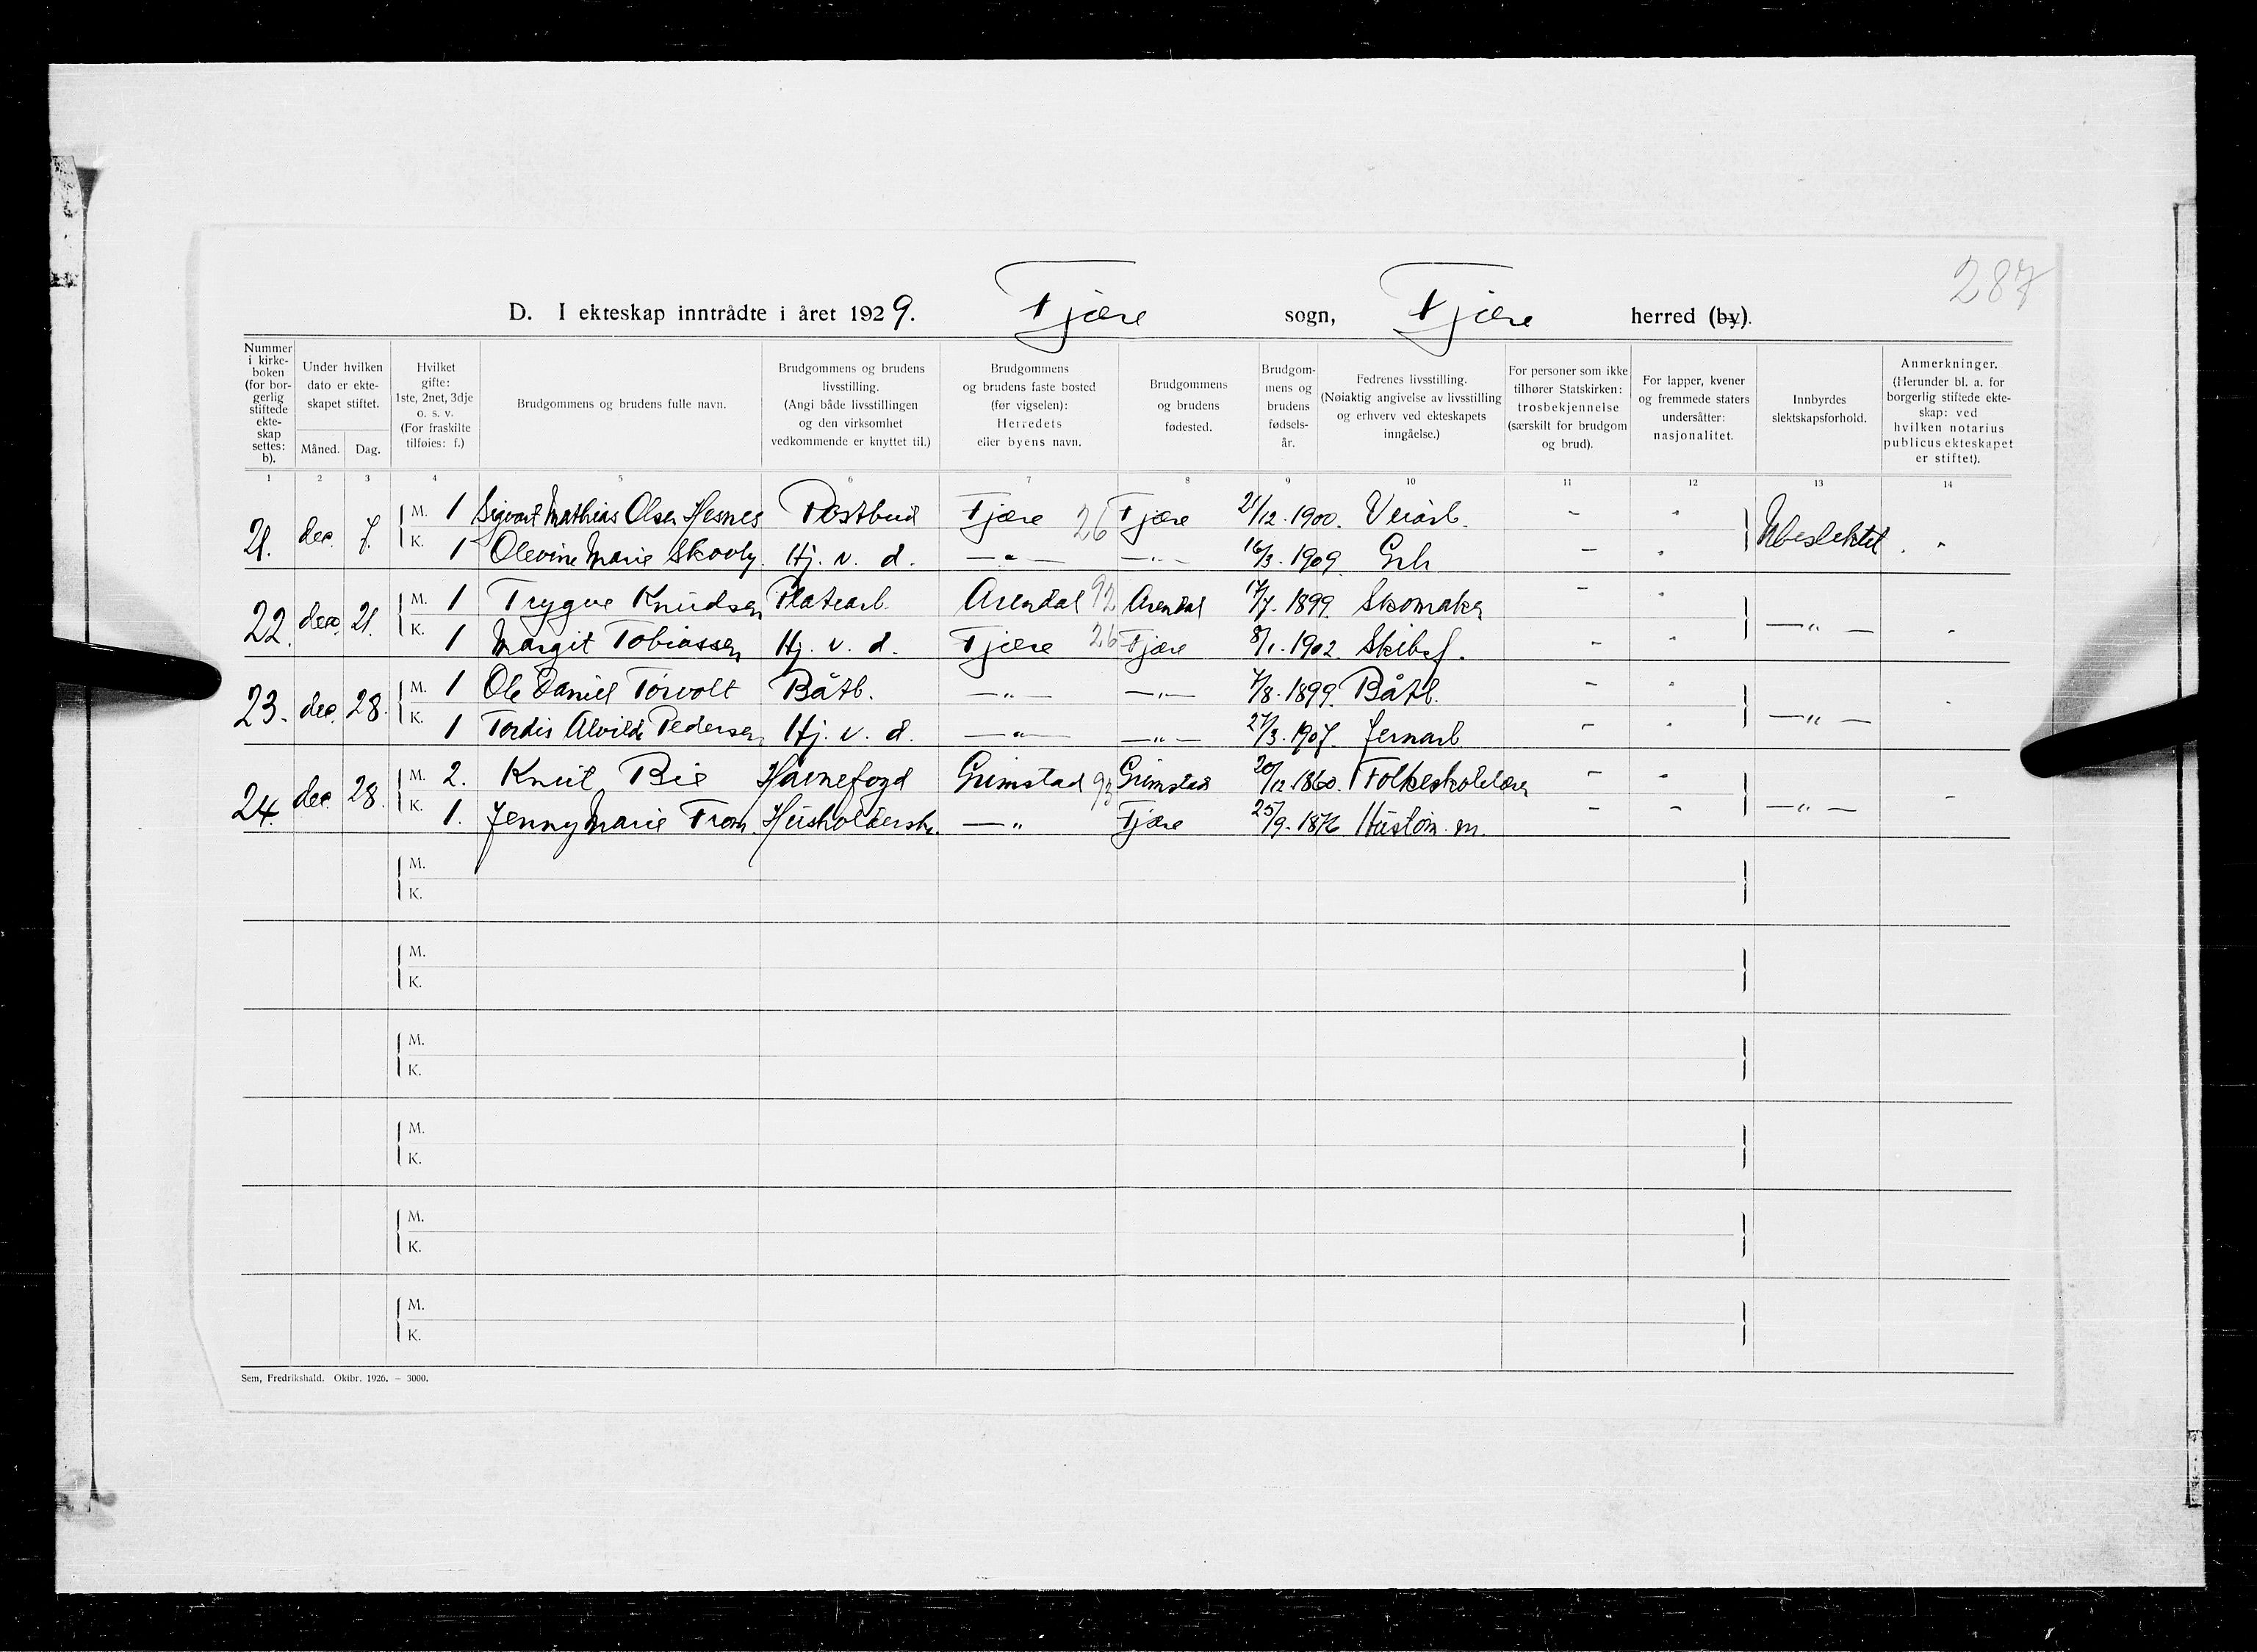 287
D. I ekteskap inntrådte i året 1929. Fjære sogn, Fjære herred (by).
Nummer i kirkeboken (for borgerlig stiftede ekteskap settes: b).
Under hvilken dato er ekteskapet stiftet.
Måned. Dag.
Hvilket gifte: 1ste, 2net, 3dje o. s. v. (For fraskilte tilføies: f.)
Brudgommens og brudens fulle navn.
Brudgommens og brudens livsstilling. (Angi både livsstillingen og den virksomhet vedkommende er knyttet til.)
Brudgommens og brudens faste bosted (før vigselen): Herredets eller byens navn.
Brudgommens og brudens fødested.
Brudgommens og brudens fødselsår.
Fedrenes livsstilling. (Nøiaktig angivelse av livsstilling og erhverv ved ekteskapets inngåelse.)
For personer som ikke tilhører Statskirken: trosbekjennelse (særskilt for brudgom og brud).
For lapper, kvener og fremmede staters undersåtter: nasjonalitet.
Innbyrdes slektskapsforhold.
Anmerkninger. (Herunder bl. a. for borgerlig stiftede ekteskap: ved hvilken notarius publicus ekteskapet er stiftet).
1 2 3 4 5 6 7 8 9 10 11 12 13 14
21. dec. 7. M. 1 Sigvart Mathias Olsen Hesnes Postbud Fjære 26 Fjære 21/12.1900. Veiarb. - - Ubeslektet. -
K. 1 Olevine Marie Skovly. Hj. v. d. —"— —"— 16/3.1909. Grb - -
22. dec. 21. M. 1 Trygve Knudsen Platearb. Arendal 92 Arendal 17/7.1899. Skomaker - - —"— -
K. 1 Margit Tobiassen Hj. v. d. Fjære 26 Fjære 8/1.1902. Skibsf. - -
23. dec. 28. M. 1 Ole Daniel Torvolt Båtb. —"— —"— 7/8.1899 Båtb. - - —"— -
K. 1 Tordis Alvilde Pedersen Hj. v. d. —"— —"— 27/3.1907. Jernarb - -
24. dec. 28. M. 2. Knut Bie Havnefogd Grimstad 93 Grimstad 20/12.1860. Folkeskolelærer - - —"— -
K. 1. Jenny Marie From Husholderske. —" Fjære 25/9.1876. Hustøm. m. - -
M.
K.
M.
K.
M.
K.
M.
K.
M.
K.
M.
K.
Sem, Fredrikshald. Oktbr. 1926. – 3000.